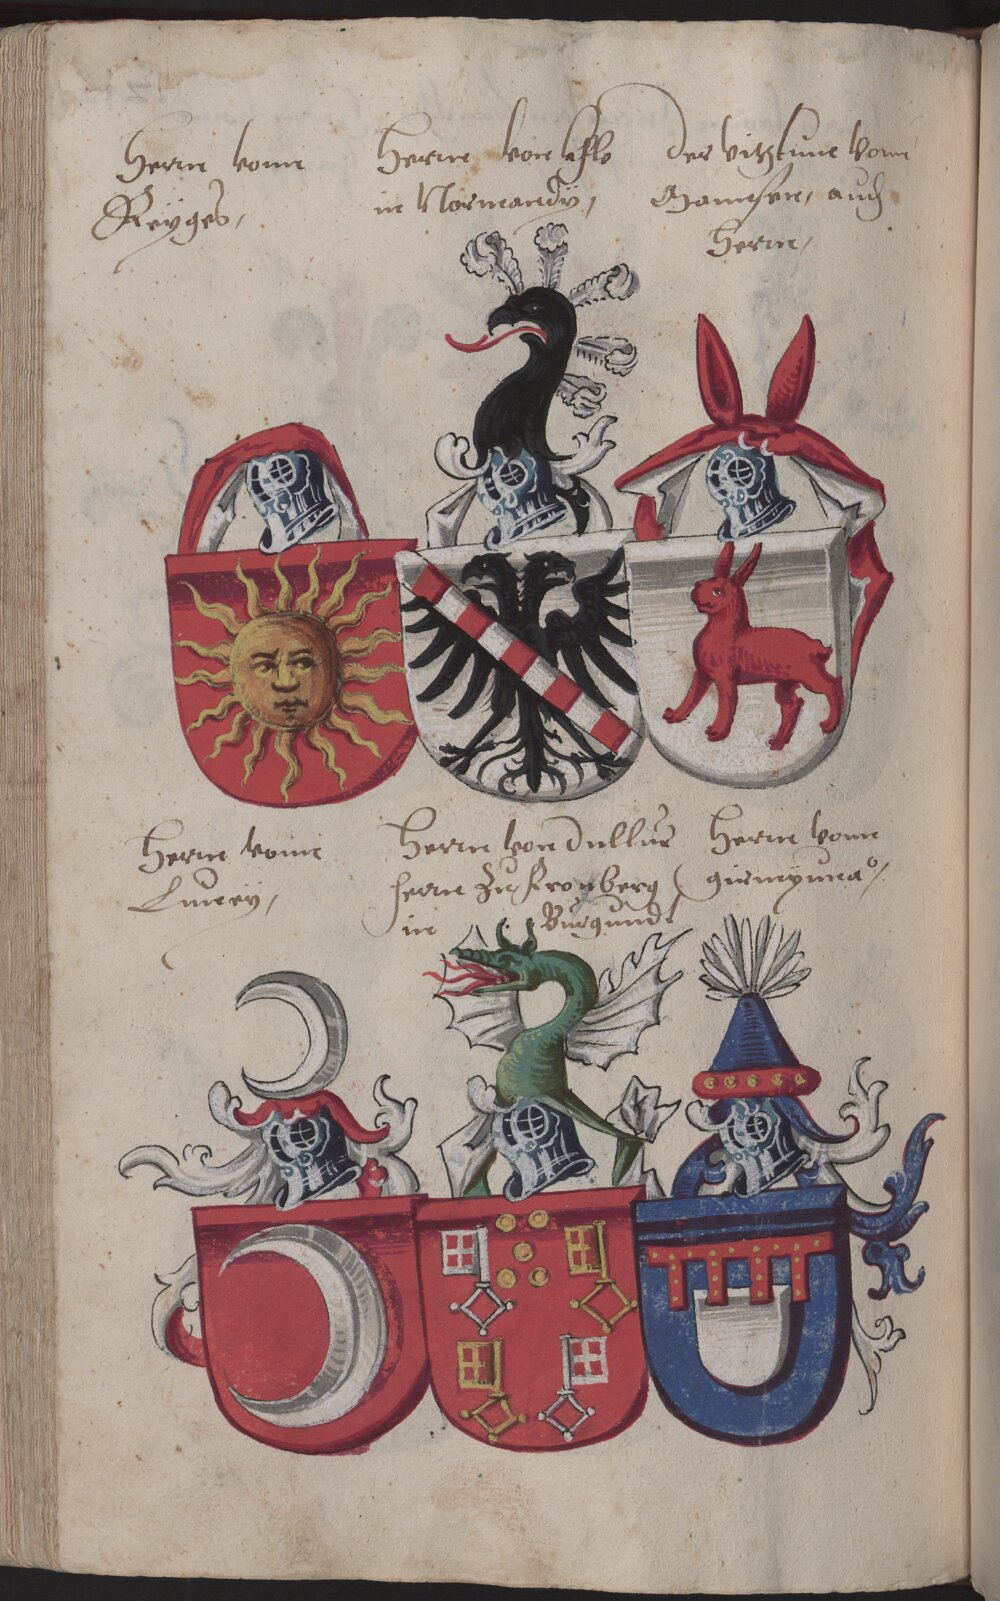 Herrn vonn
Reyges,
Herrn von
in Normandy,
Der vitztumb vonn
auch
Herrn,
Herrn vonn
Lurcy,
Herrn von Dullus
herrn zu Kronberg
in Burgundt
Herrn vonn